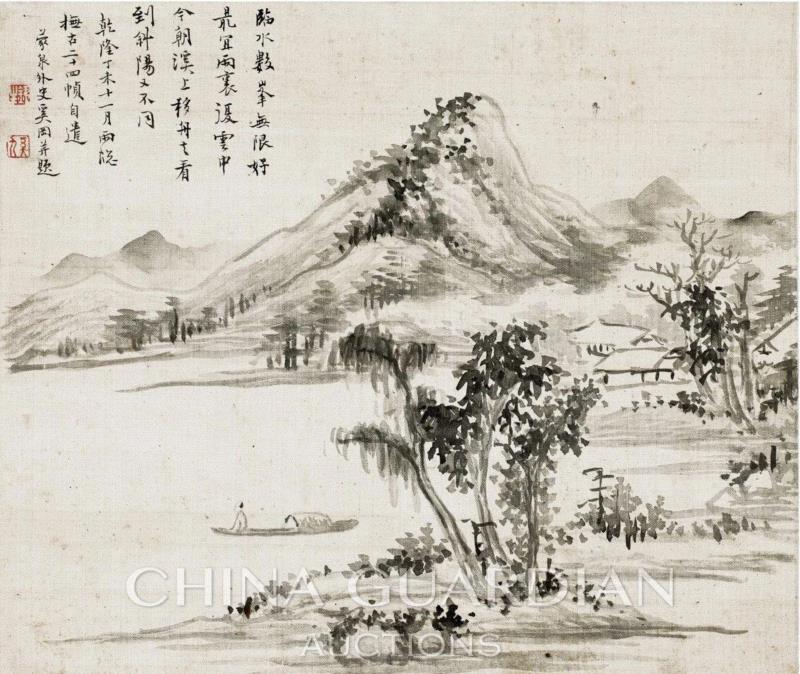 臨水數峯無限好
最宜雨裏複雲中
今朝溪上移舟去看
到斜陽又不同
乾隆丁未十一月雨牕
撫古二十四幀自遣
蒙泉外史奚岡并題
CHINA GUARDIAN
AUCTIONS